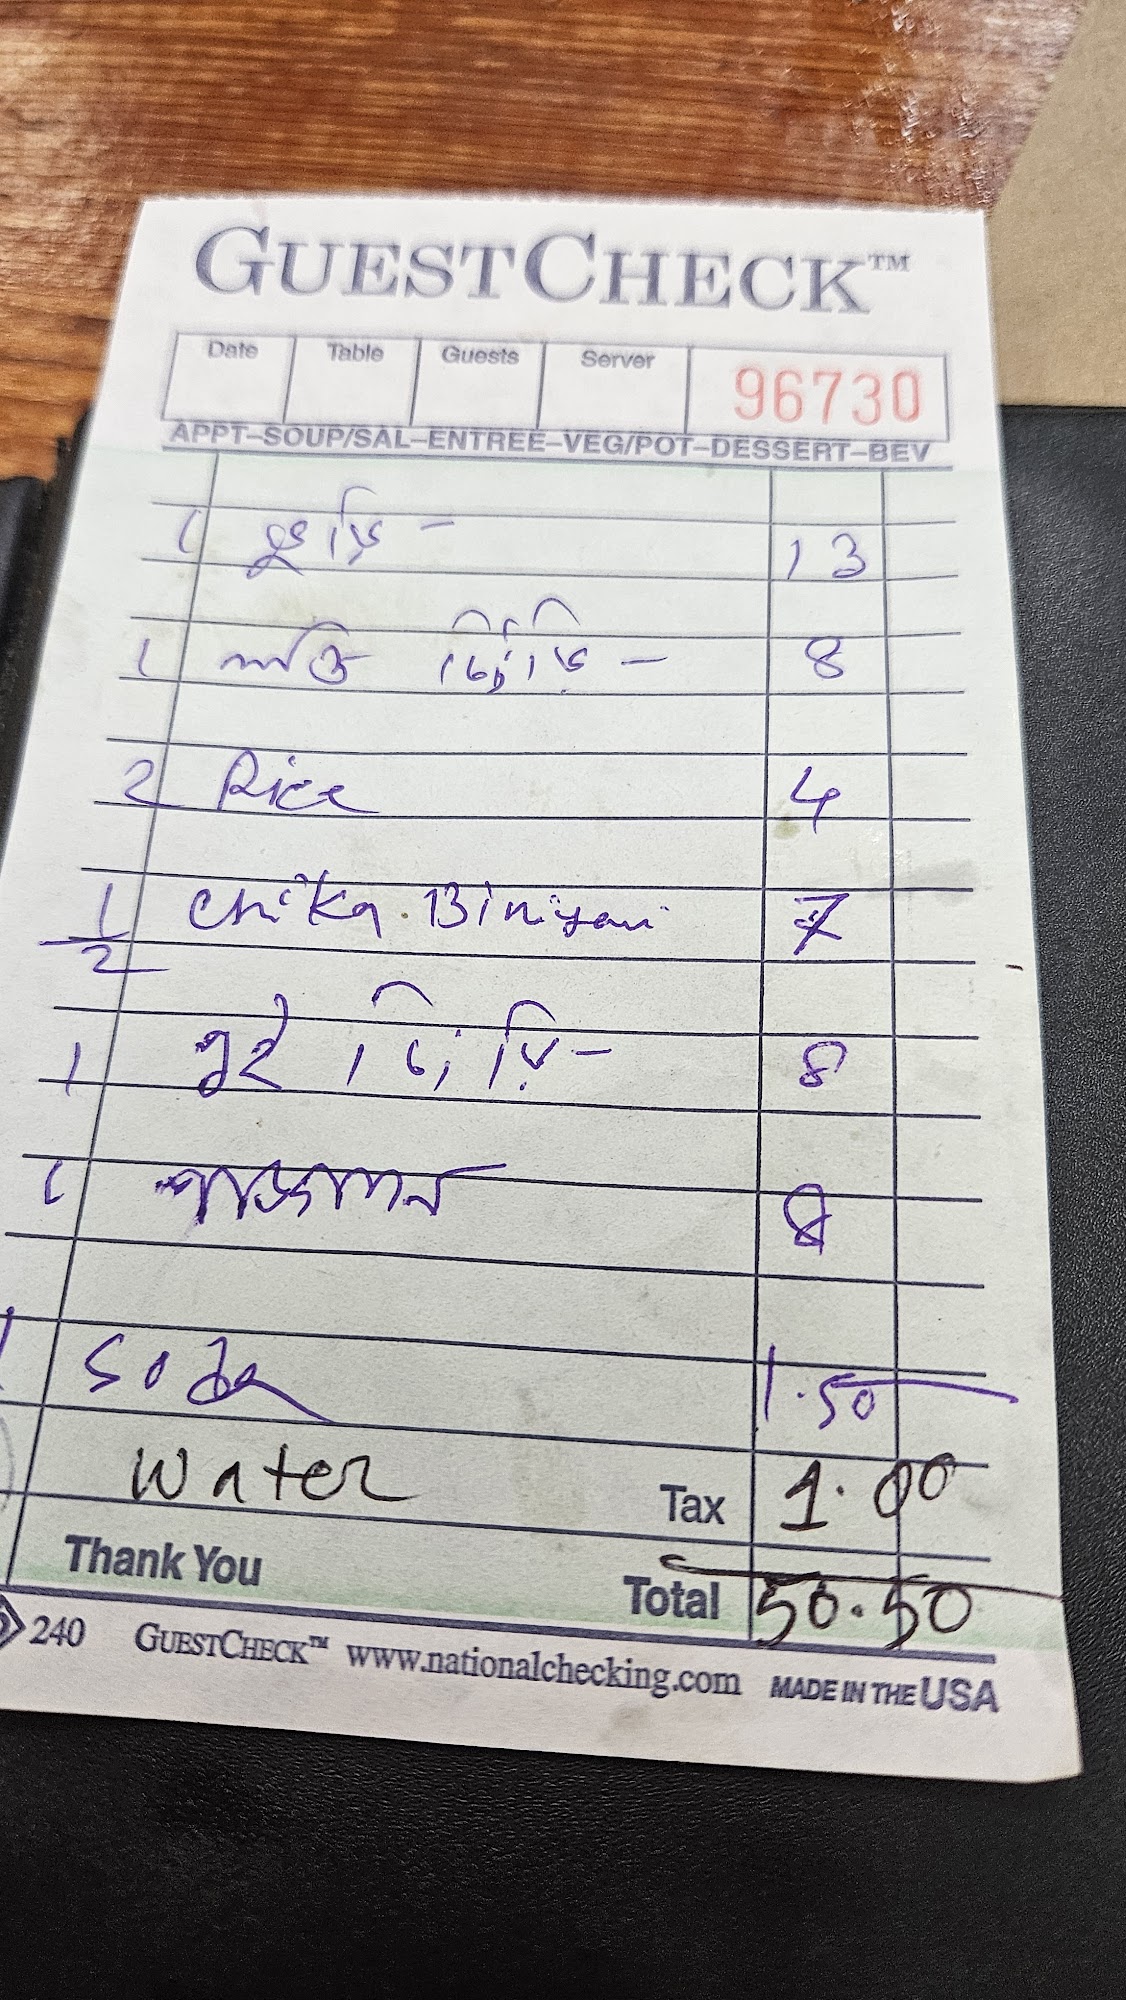 GUESTCHECK™
Date Table Guests Server 96730
APPT–SOUP/SAL–ENTREE–VEG/POT–DESSERT–BEV
1 13
1 8
2 Rice 4
1/2 Chika. Biniyani 7
1 8
1 8
Soda 1.50
Water Tax 1.00
Thank You Total 50.50
240 GUESTCHECK™ www.nationalchecking.com MADE IN THE USA